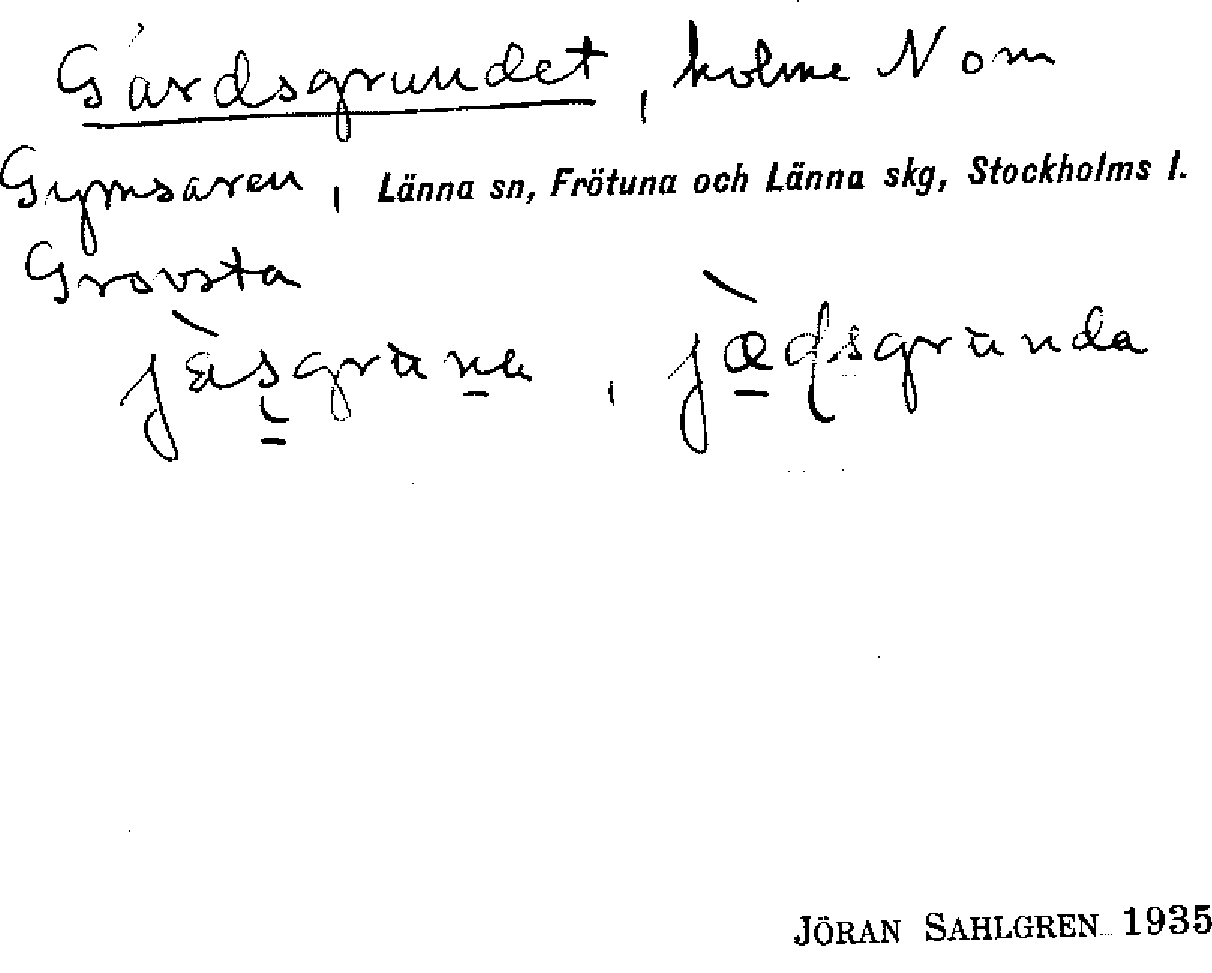 Gärdsgrundet, holme N om
Gymsaren, Länna sn, Frötuna och Länna skg, Stockholms l.
Grovsta
jä̀sgruna, jæ̀dsgrunda
JÖRAN SAHLGREN 1935